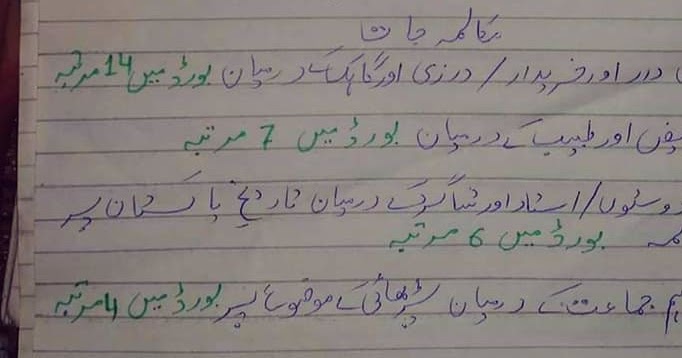 مکالمہ جات
دار اور خریدار / درزی اور گاہک کے درمیان بورڈ میں 14 مرتبہ
اور طبیب کے درمیان بورڈ میں 7 مرتبہ
دوستوں / استاد اور شاگرد کے درمیان تاریخِ پاکستان پر
بورڈ میں 6 مرتبہ
ہم جماعت کے درمیان پڑھائی کے موضوع پر بورڈ میں 4 مرتبہ